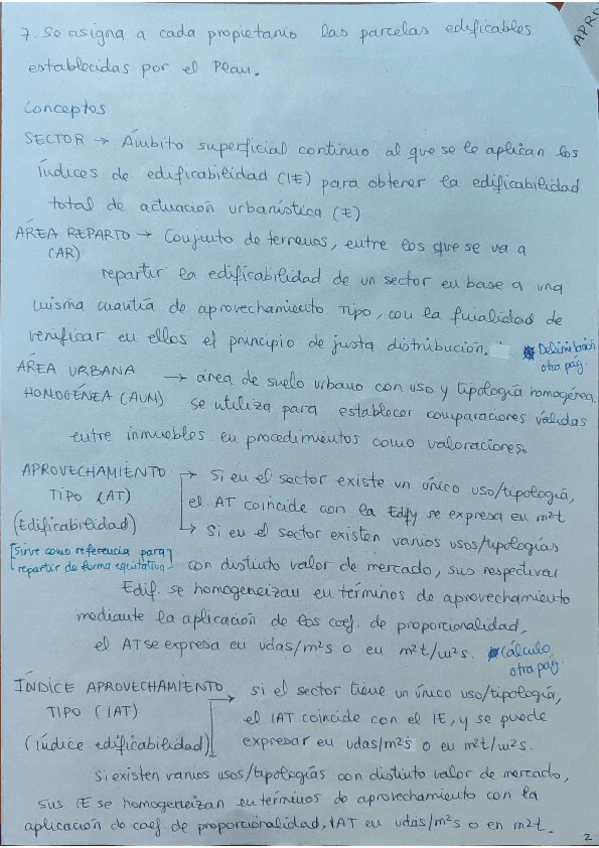 7. Se asigna a cada propietario las parcelas edificables
establecidas por el Plan.
APRO
Conceptos
SECTOR → Ámbito superficial continuo al que se le aplican los
índices de edificabilidad (IE) para obtener la edificabilidad
total de actuación urbanística (E)
ÁREA REPARTO → Conjunto de terrenos, entre los que se va a
(AR)
repartir la edificabilidad de un sector en base a una
misma cuantía de aprovechamiento tipo, con la finalidad de
verificar en ellos el principio de justa distribución.
* Delimitación
otra pág.
ÁREA URBANA
HOMOGÉNEA (AUM) → área de suelo urbano con uso y tipología homogénea.
se utiliza para establecer comparaciones válidas
entre inmuebles en procedimientos como valoraciones.
APROVECHAMIENTO
TIPO (AT)
(Edificabilidad)
[Sirve como referencia para
repartir de forma equitativa]
→ Si en el sector existe un único uso/tipología,
el AT coincide con la Edfy se expresa en m²t
→ Si en el sector existen varios usos/tipologías
con distinto valor de mercado, sus respectivas
Edif. se homogeneizan en términos de aprovechamiento
mediante la aplicación de los coef. de proporcionalidad,
el AT se expresa en udas/m²s o en m²t/m²s.
* Cálculo
otra pág.
ÍNDICE APROVECHAMIENTO
TIPO (IAT)
(índice edificabilidad)
→ si el sector tiene un único uso/tipología,
el IAT coincide con el IE, y se puede
expresar en udas/m²s o en m²t/m²s.
Si existen varios usos/tipologías con distinto valor de mercado,
sus IE se homogeneizan en términos de aprovechamiento con la
aplicación de coef. de proporcionalidad, IAT en udas/m²s o en m²t.
2